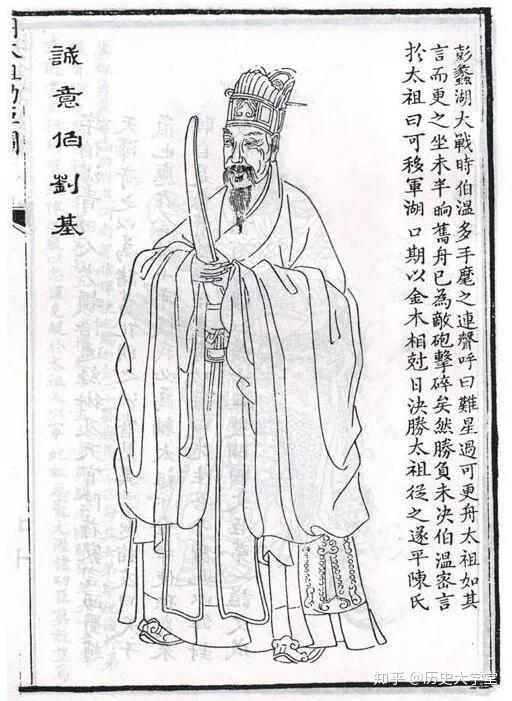 彭蠡湖大戰時伯溫多手麾之連聲呼曰難星過可更舟太祖如其
言而更之坐未半晌舊舟已為敵砲擊碎矣然勝負未决伯溫密言
扵太祖曰可移軍湖口期以金木相尅日决勝太祖從之遂平陳氏
誠意伯劉基
知乎 @历史大学堂